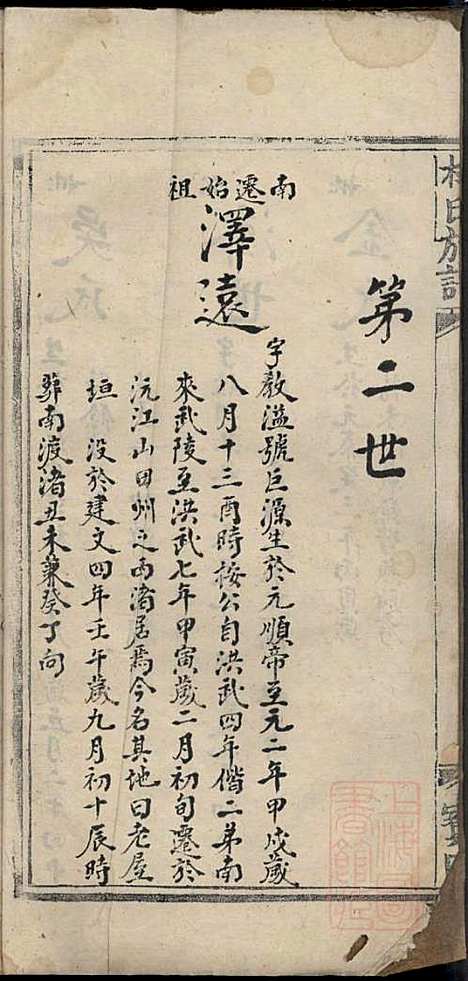 氏族譜
第二世
南遷始祖
澤遠
字教溢號巨源生於元順帝至元二年甲戌歲
八月十三酉時按公自洪武四年偕二弟南
來武陵至洪武七年甲寅歲二月初旬遷於
沅江山田州之南渚居焉今名其地曰老屋
垣 没於建文四年壬午歲九月初十辰時
葬南渡渚丑未兼癸丁向